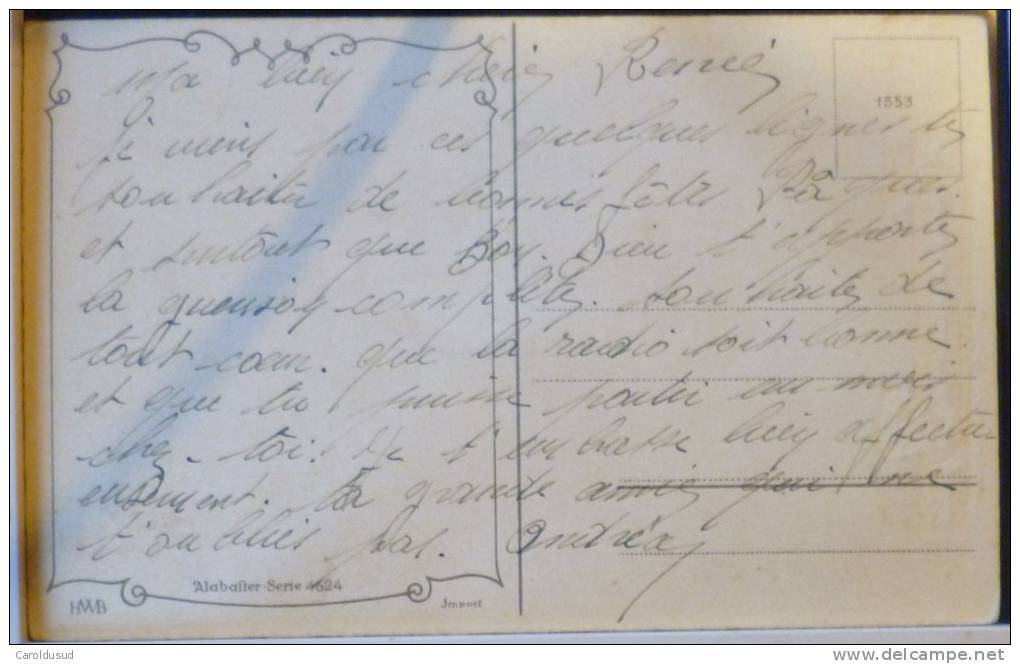 Ma bien chère Renée
Je viens par ces quelques lignes te
souhaiter de bonnes fêtes Pâques.
et surtout que Bon. Dieu t'apporte
la guerison complète. souhaite de
tout cœur. que la radio soit bonne
et que tu puisse partir au mois
chez-toi. Je t'embrasse bien affectu
eusement. ta grande amie qui ne
t'oublies pas. Andréa
1553
Alabaster-Serie 4624
HWB
Import
Caroldusud
www.delcampe.net